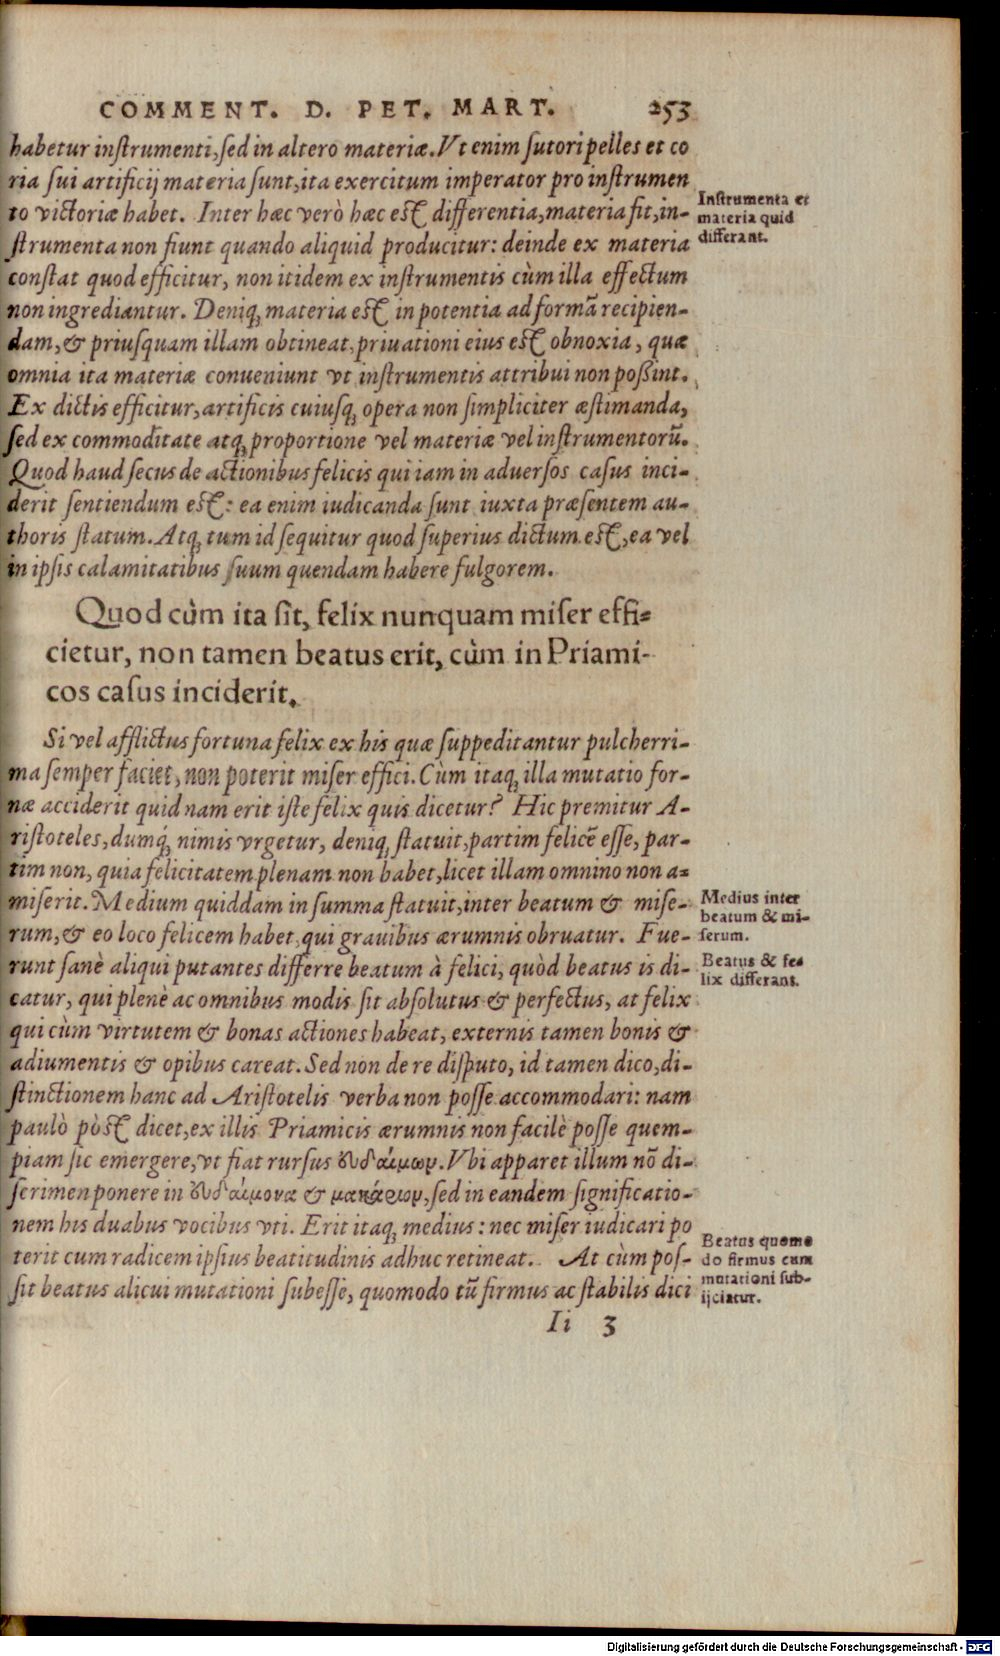 COMMENT. D. PET. MART. 253
habetur inſtrumenti, ſed in altero materiæ. Vt enim ſutori pelles et co
ria ſui artificij materia ſunt, ita exercitum imperator pro inſtrumen
to victoriæ habet. Inter hæc verò hæc eſt differentia, materia fit, in-
ſtrumenta non fiunt quando aliquid producitur: deinde ex materia
conſtat quod efficitur, non itidem ex inſtrumentis cùm illa effectum
non ingrediantur. Deniq; materia eſt in potentia ad formā recipien-
dam, & priuſquam illam obtineat, priuationi eius eſt obnoxia, quæ
omnia ita materiæ conueniunt vt inſtrumentis attribui non poßint.
Ex dictis efficitur, artificis cuiuſq; opera non ſimpliciter æſtimanda,
ſed ex commoditate atq; proportione vel materiæ vel inſtrumentorū.
Quod haud ſecus de actionibus felicis qui iam in aduerſos caſus inci-
derit ſentiendum eſt: ea enim iudicanda ſunt iuxta præſentem au-
thoris ſtatum. Atq; tum id ſequitur quod ſuperius dictum eſt, ea vel
in ipſis calamitatibus ſuum quendam habere fulgorem.
Inſtrumenta et
materia quid
differant.
Quod cùm ita ſit, felix nunquam miſer effi-
cietur, non tamen beatus erit, cùm in Priami-
cos caſus inciderit.
Si vel afflictus fortuna felix ex his quæ ſuppeditantur pulcherri-
ma ſemper faciet, non poterit miſer effici. Cùm itaq; illa mutatio for-
næ acciderit quid nam erit iſte felix quis dicetur? Hic premitur A-
riſtoteles, dumq́; nimis vrgetur, deniq; ſtatuit, partim felicē eſſe, par-
tim non, quia felicitatem plenam non habet, licet illam omnino non a-
miſerit. Medium quiddam in ſumma ſtatuit, inter beatum & miſe-
rum, & eo loco felicem habet, qui grauibus ærumnis obruatur. Fue-
runt ſanè aliqui putantes differre beatum à felici, quòd beatus is di-
catur, qui plenè ac omnibus modis ſit abſolutus & perfectus, at felix
qui cùm virtutem & bonas actiones habeat, externis tamen bonis &
adiumentis & opibus careat. Sed non de re diſputo, id tamen dico, di-
ſtinctionem hanc ad Ariſtotelis verba non poſſe accommodari: nam
paulò pòſt dicet, ex illis Priamicis ærumnis non facilè poſſe quem-
piam ſic emergere, vt fiat rurſus ευδαίμων. Vbi apparet illum nō di-
ſcrimen ponere in ευδαίμονα & μακάριον, ſed in eandem ſignificatio-
nem his duabus vocibus vti. Erit itaq; medius: nec miſer iudicari po
terit cum radicem ipſius beatitudinis adhuc retineat. At cùm poſ-
ſit beatus alicui mutationi ſubeſſe, quomodo tū firmus ac ſtabilis dici
Medius inter
beatum & mi-
ſerum.
Beatus & fe-
lix differant.
Beatus quomo
do firmus cum
mutationi ſub-
ijciatur.
Ii 3
Digitalisierung gefördert durch die Deutsche Forschungsgemeinschaft - DFG